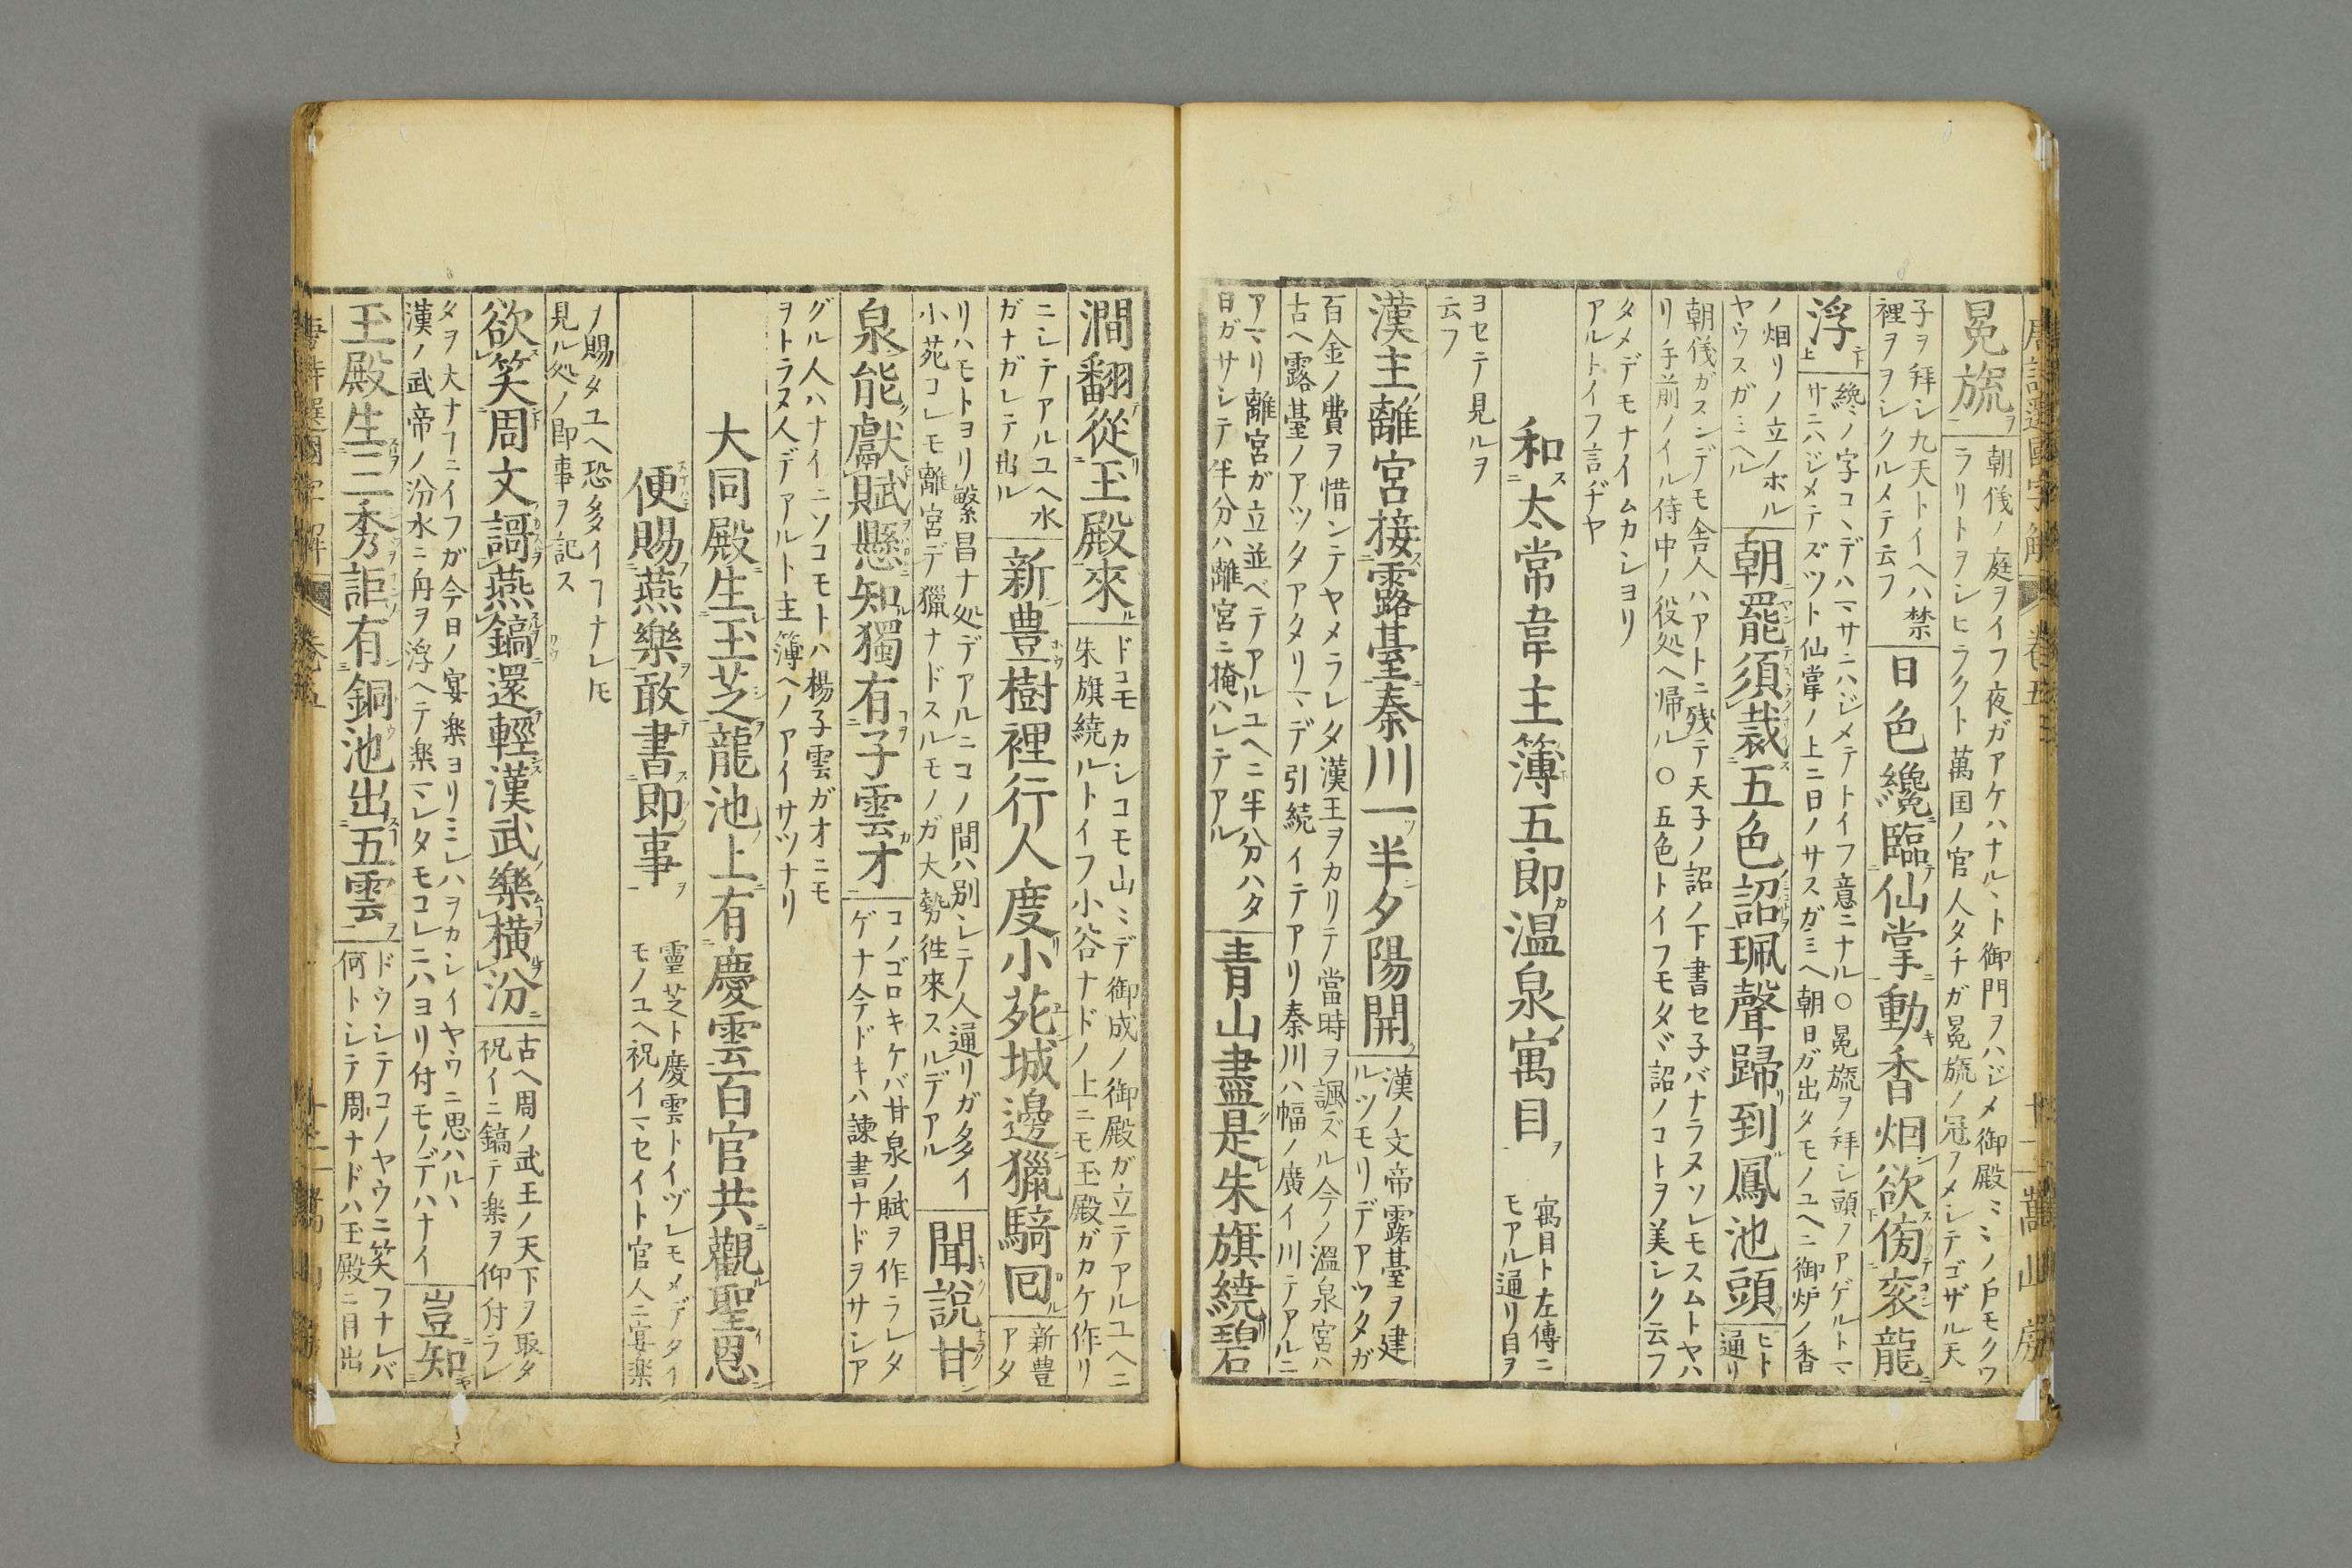 唐詩選國字解 卷五 十一 嵩山房
冕旒 朝儀ノ庭ヲイフ夜ガアケハナルヽト御門ヲハジメ御殿ミミノ戸モクワ
ラリトヲシヒラクト萬国ノ官人タチガ冕旒ノ冠ヲメシテゴザル天
子ヲ拜シ九天トイヘハ禁
裡ヲヲシクルメテ云フ
日色纔臨仙掌動香烟欲傍袞龍
浮 纔ミノ字コヽデハマサニハジメテトイフ意ニナル○冕旒ヲ拜シ頭ノアゲルトマ
サニハジメテズツト仙掌ノ上ニ日ノサスガミヘ朝日ガ出タモノユヘニ御炉ノ香
ノ烟リノ立ノボル
ヤウスガミヘル
朝罷須裁五色詔珮聲歸到鳳池頭 ヒト
通リ
朝儀ガスンデモ舎人ハアトニ残テ天子ノ詔ノ下書セ子バナラヌソレモスムトヤハ
リ手前ノイル侍中ノ役処ヘ帰ル○五色トイフモタヾ詔ノコトヲ美シク云フ
タメデモナイムカシヨリ
アルトイフ言ヂヤ
和太常韋主簿五郎温泉寓目 寓目ト左傳ニ
モアル通リ目ヲ
ヨセテ見ルヲ
云フ
漢主離宮接露臺秦川一半夕陽開 漢ノ文帝露臺ヲ建
ルツモリデアツタガ
百金ノ費ヲ惜ンテヤメラレタ漢王ヲカリテ當時ヲ諷ズル今ノ温泉宮ハ
古ヘ露臺ノアツタアタリマデ引続イテアリ秦川ハ幅ノ廣イ川テアルニ
アマリ離宮ガ立並ベテアルユヘニ半分ハタ
日ガサシテ半分ハ離宮ニ掩ハレテアル
青山盡是朱旗繞碧
澗翻從玉殿來 ドコモカシコモ山ミデ御成ノ御殿ガ立テアルユヘニ
朱旗繞ルトイフ小谷ナドノ上ニモ玉殿ガカケ作リ
ニシテアルユヘ水
ガナガレテ出ル
新豊樹裡行人度小苑城邊獵騎囘 新豊
アタ
リハモトヨリ繁昌ナ処デアルニコノ間ハ別シテ人通リガ多イ
小苑コレモ離宮デ獵ナドスルモノガ大勢徃來スルデアル
聞說甘
泉能獻賦懸知獨有子雲才 コノゴロキケバ甘泉ノ賦ヲ作ラレタ
ゲナ今ドキハ諫書ナドヲサシア
グル人ハナイニソコモトハ楊子雲ガオニモ
ヲトラヌ人デアルト主簿ヘノアイサツナリ
大同殿生玉芝龍池上有慶雲百官共觀聖恩
便賜燕樂敢書即事 靈芝ト慶雲トイヅレモメデタイ
モノユヘ祝イマセイト官人ニ宴楽
ノ賜タユヘ恐多イフナレ𪜈
見ル処ノ即事ヲ記ス
欲笑周文謌燕鎬還輕漢武樂橫汾 古ヘ周ノ武王ノ天下ヲ取タ
祝イニ鎬テ楽ヲ仰付ラレ
タヲ大ナフニイフガ今日ノ宴楽ヨリミレハヲカシイヤウニ思ハルヽ
漢ノ武帝ノ汾水ニ舟ヲ浮ヘテ楽マレタモコレニハヨリ付モノデハナイ
豈知
玉殿生三秀詎有銅池出五雲 ドウシテコノヤウニ笑フナレバ
何トシテ周ナドハ玉殿ニ月出